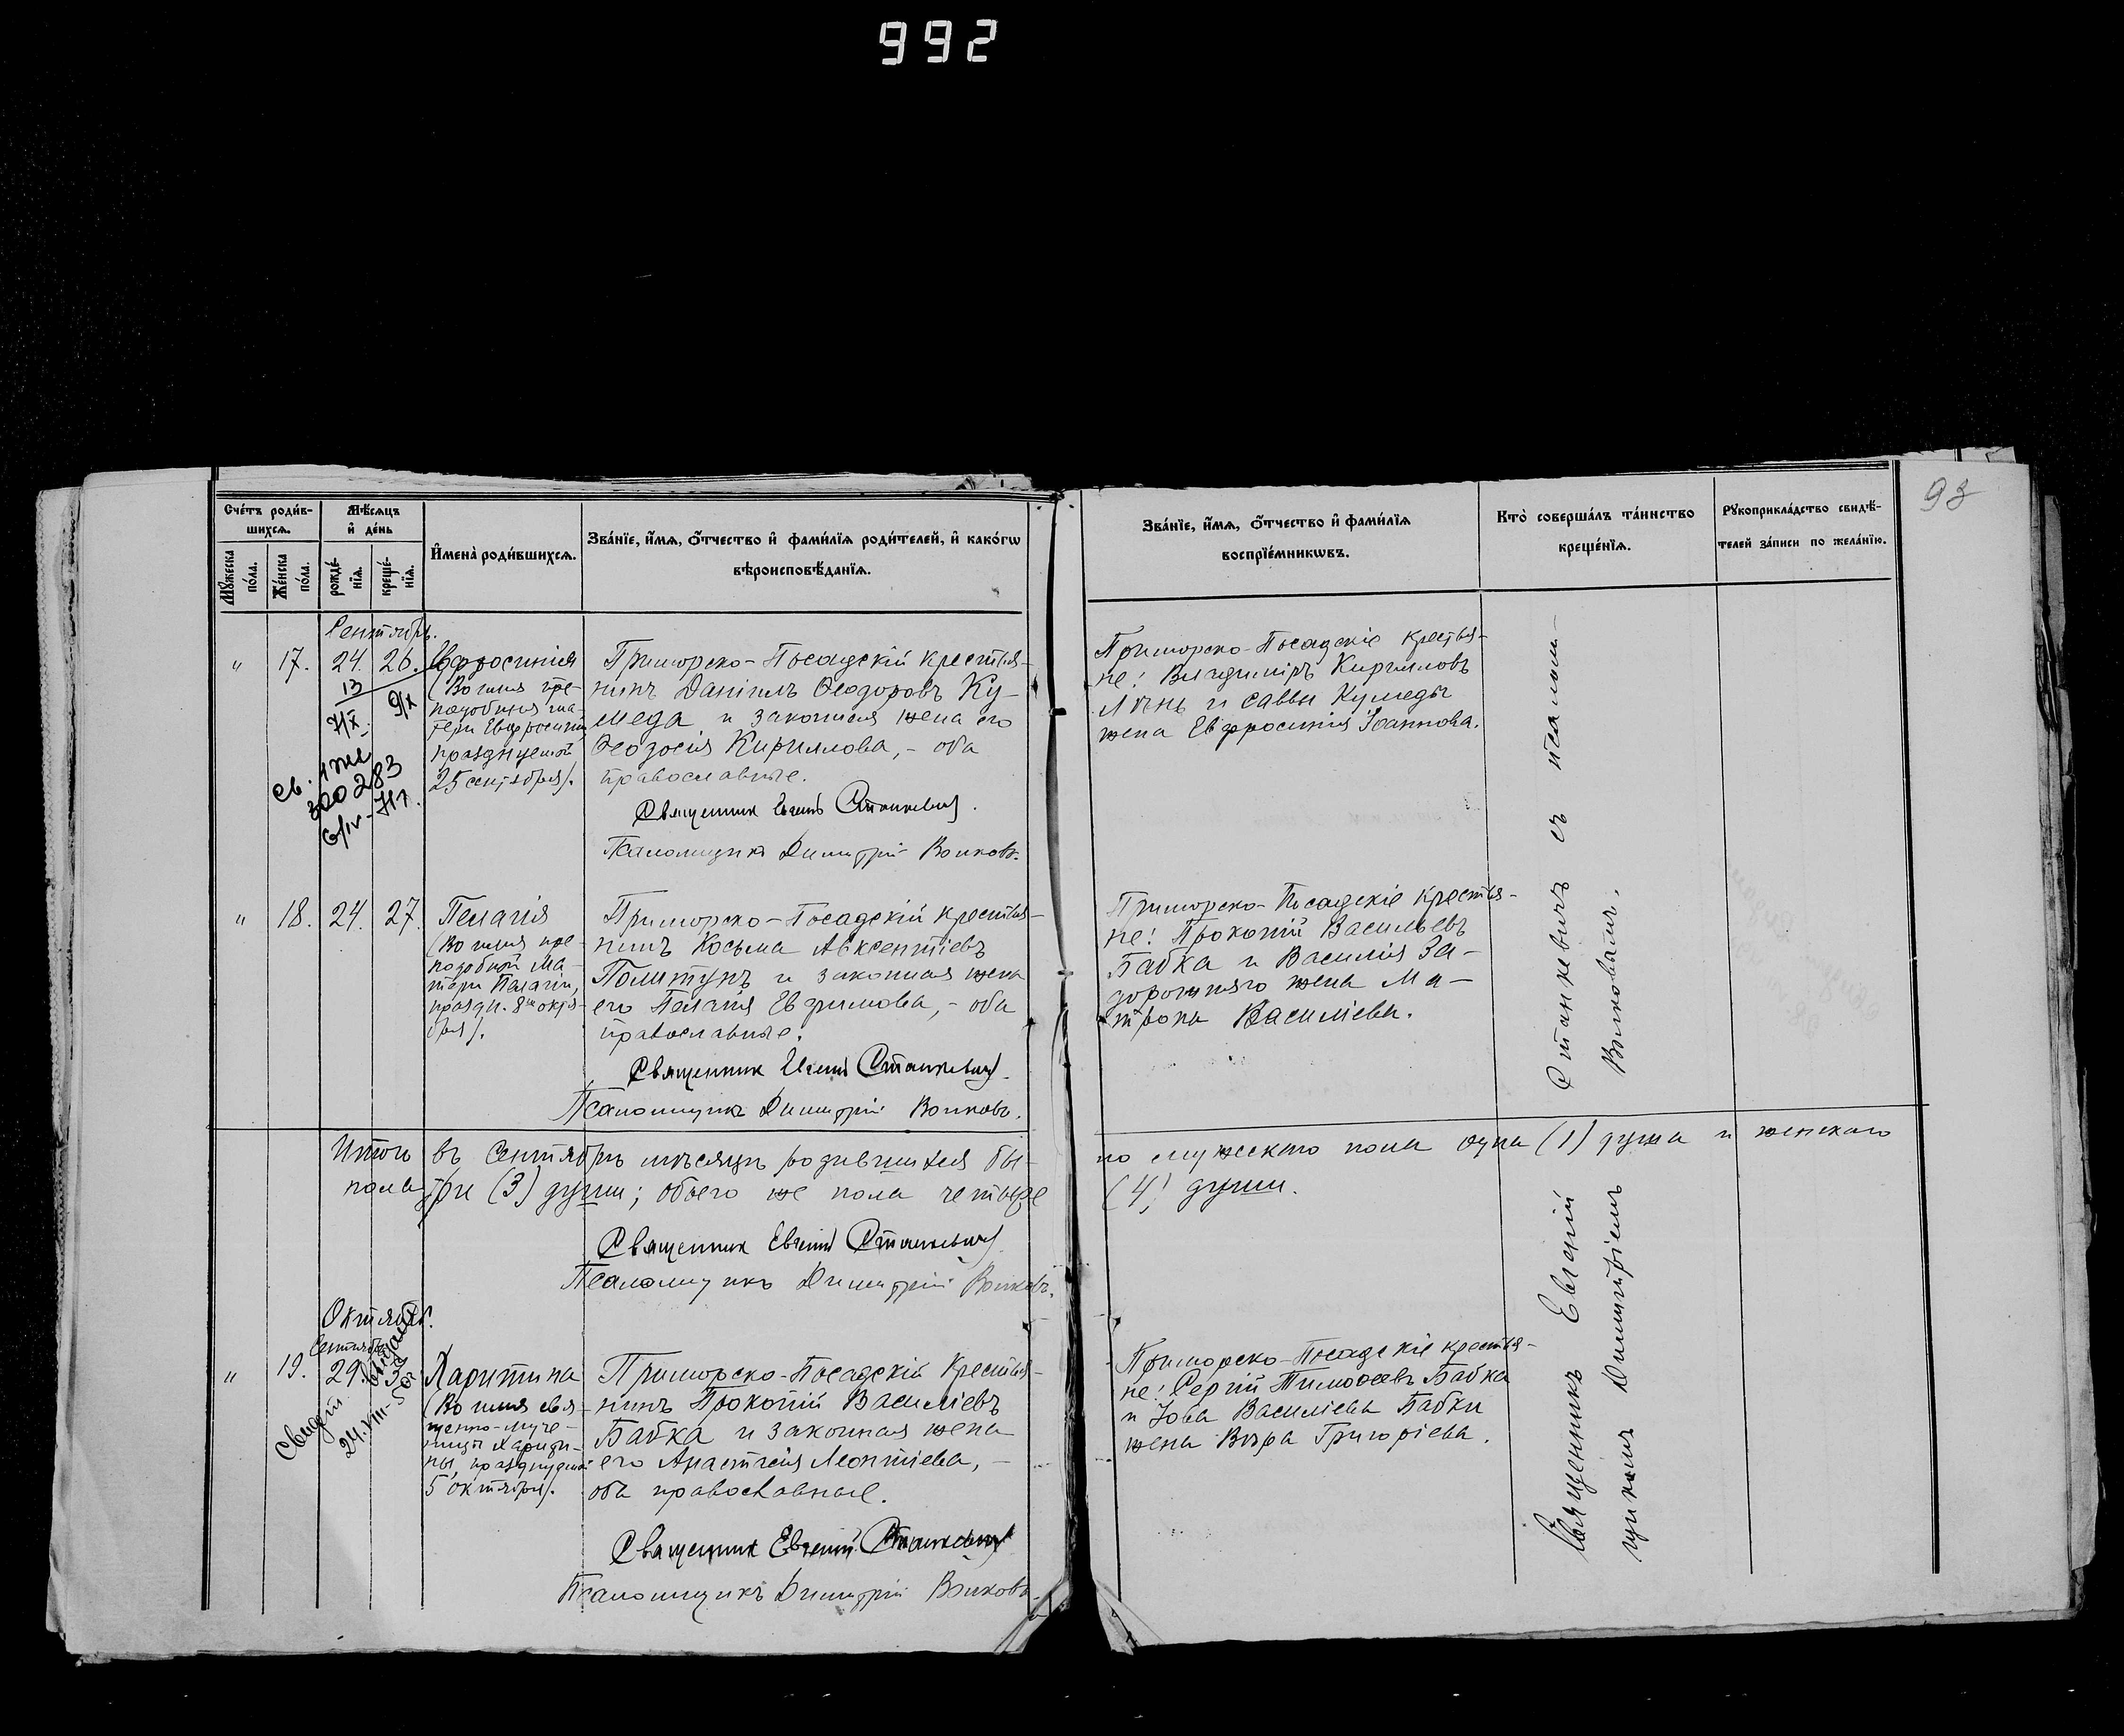 992
93
Счетъ родив-
шихся.
Мѣсяцъ
и день
Мужеска
пола.
Женска
пола.
рожде-
нія.
креще-
нія.
Имена родившихся.
Званіе, имя, отчество и фамилія родителей, и какого
вѣроисповѣданія.
Званіе, имя, отчество и фамилія
воспріемниковъ.
Кто совершалъ таинство
крещенія.
Рукоприкладство свидѣ-
телей записи по желанію.
Сентябрь.
" 17. 24. 26.
13
7/X. 9/X
Евфросинія
(Во имя пре-
подобныя ма-
тери Евфросиніи
празднуемой
25 сентября).
Приморско-Посадскій крестья-
нинъ Даніилъ Ѳеодоровъ Ку-
меда и законная жена его
Ѳеодосія Кириллова, - оба
православные.
Священник Евгеній Станкевич.
Псаломщикъ Димитрій Волковъ.
Приморско-Посадскіе крестья-
не: Владиміръ Кирилловъ
Линь и Саввы Кумеды
жена Евфросинія Іоаннова.
" 18. 24. 27.
Пелагія
(Во имя пре-
подобной Ма-
тери Пелагіи,
праздн. 8го октя-
бря).
Приморско-Посадскій крестья-
нинъ Косьма Авксентіевъ
Полтунъ и законная жена
его Пелагія Ефимова, - оба
православные.
Священник Евгеній Станкевич.
Псаломщикъ Димитрій Волковъ.
Приморско-Посадскіе крестья-
не: Прокопій Васильевъ
Бабка и Василія За-
дорожняго жена Ма-
трона Василіева.
Итого въ Сентябрѣ мѣсяцѣ родившихся бы-
ло мужескаго пола одна (1) душа и женскаго
пола три (3) души; обоего же пола четыре
(4) души.
Священник Евгеній Станкевич
Псаломщикъ Димитрій Волковъ.
Октябрь.
Сентябрь
" 19. 29. 3.
24.VIII-50
Харитина
(Во имя свя-
щенно-муче-
ницы Харити-
ны, празднуемой
5 октября).
Приморско-Посадскій Крестья-
нинъ Прокопій Василіевъ
Бабка и законная жена
его Анастасія Леонтіева, -
оба православные.
Священник Евгеній Станкевич
Псаломщикъ Димитрій Волковъ.
Приморско-Посадскіе крестья-
не: Сергій Тимоѳеевъ Бабка
и Іова Василіева Бабки
жена Вѣра Григоріева.
Священникъ Евгеній Станкевичъ съ псалом-
щикомъ Димитріемъ Волковымъ.